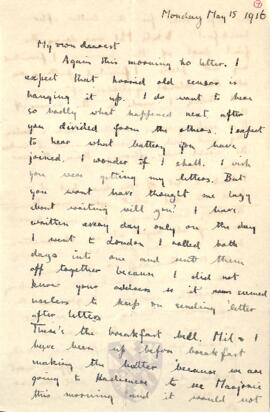 Monday May 15 1916
My own dearest
Again this morning no letter. I
expect that horrid old censor is
hanging it up. I do want to hear
so badly what happened next after
you divided from the others. I expect
to hear what battery you have
joined. I wonder if I shall. I wish
you were getting my letters. But
you wont have thought me lazy
about writing will you? I have
written every day only on the day
I went to London I rolled both
days into one and sent them
off together because I did not
know your address so it seemed
useless to keep on sending letter
after letters
There's the breakfast bell. Mil & I
have been up before breakfast
making the butter because we are
going to to see Marjorie
this morning and it would not